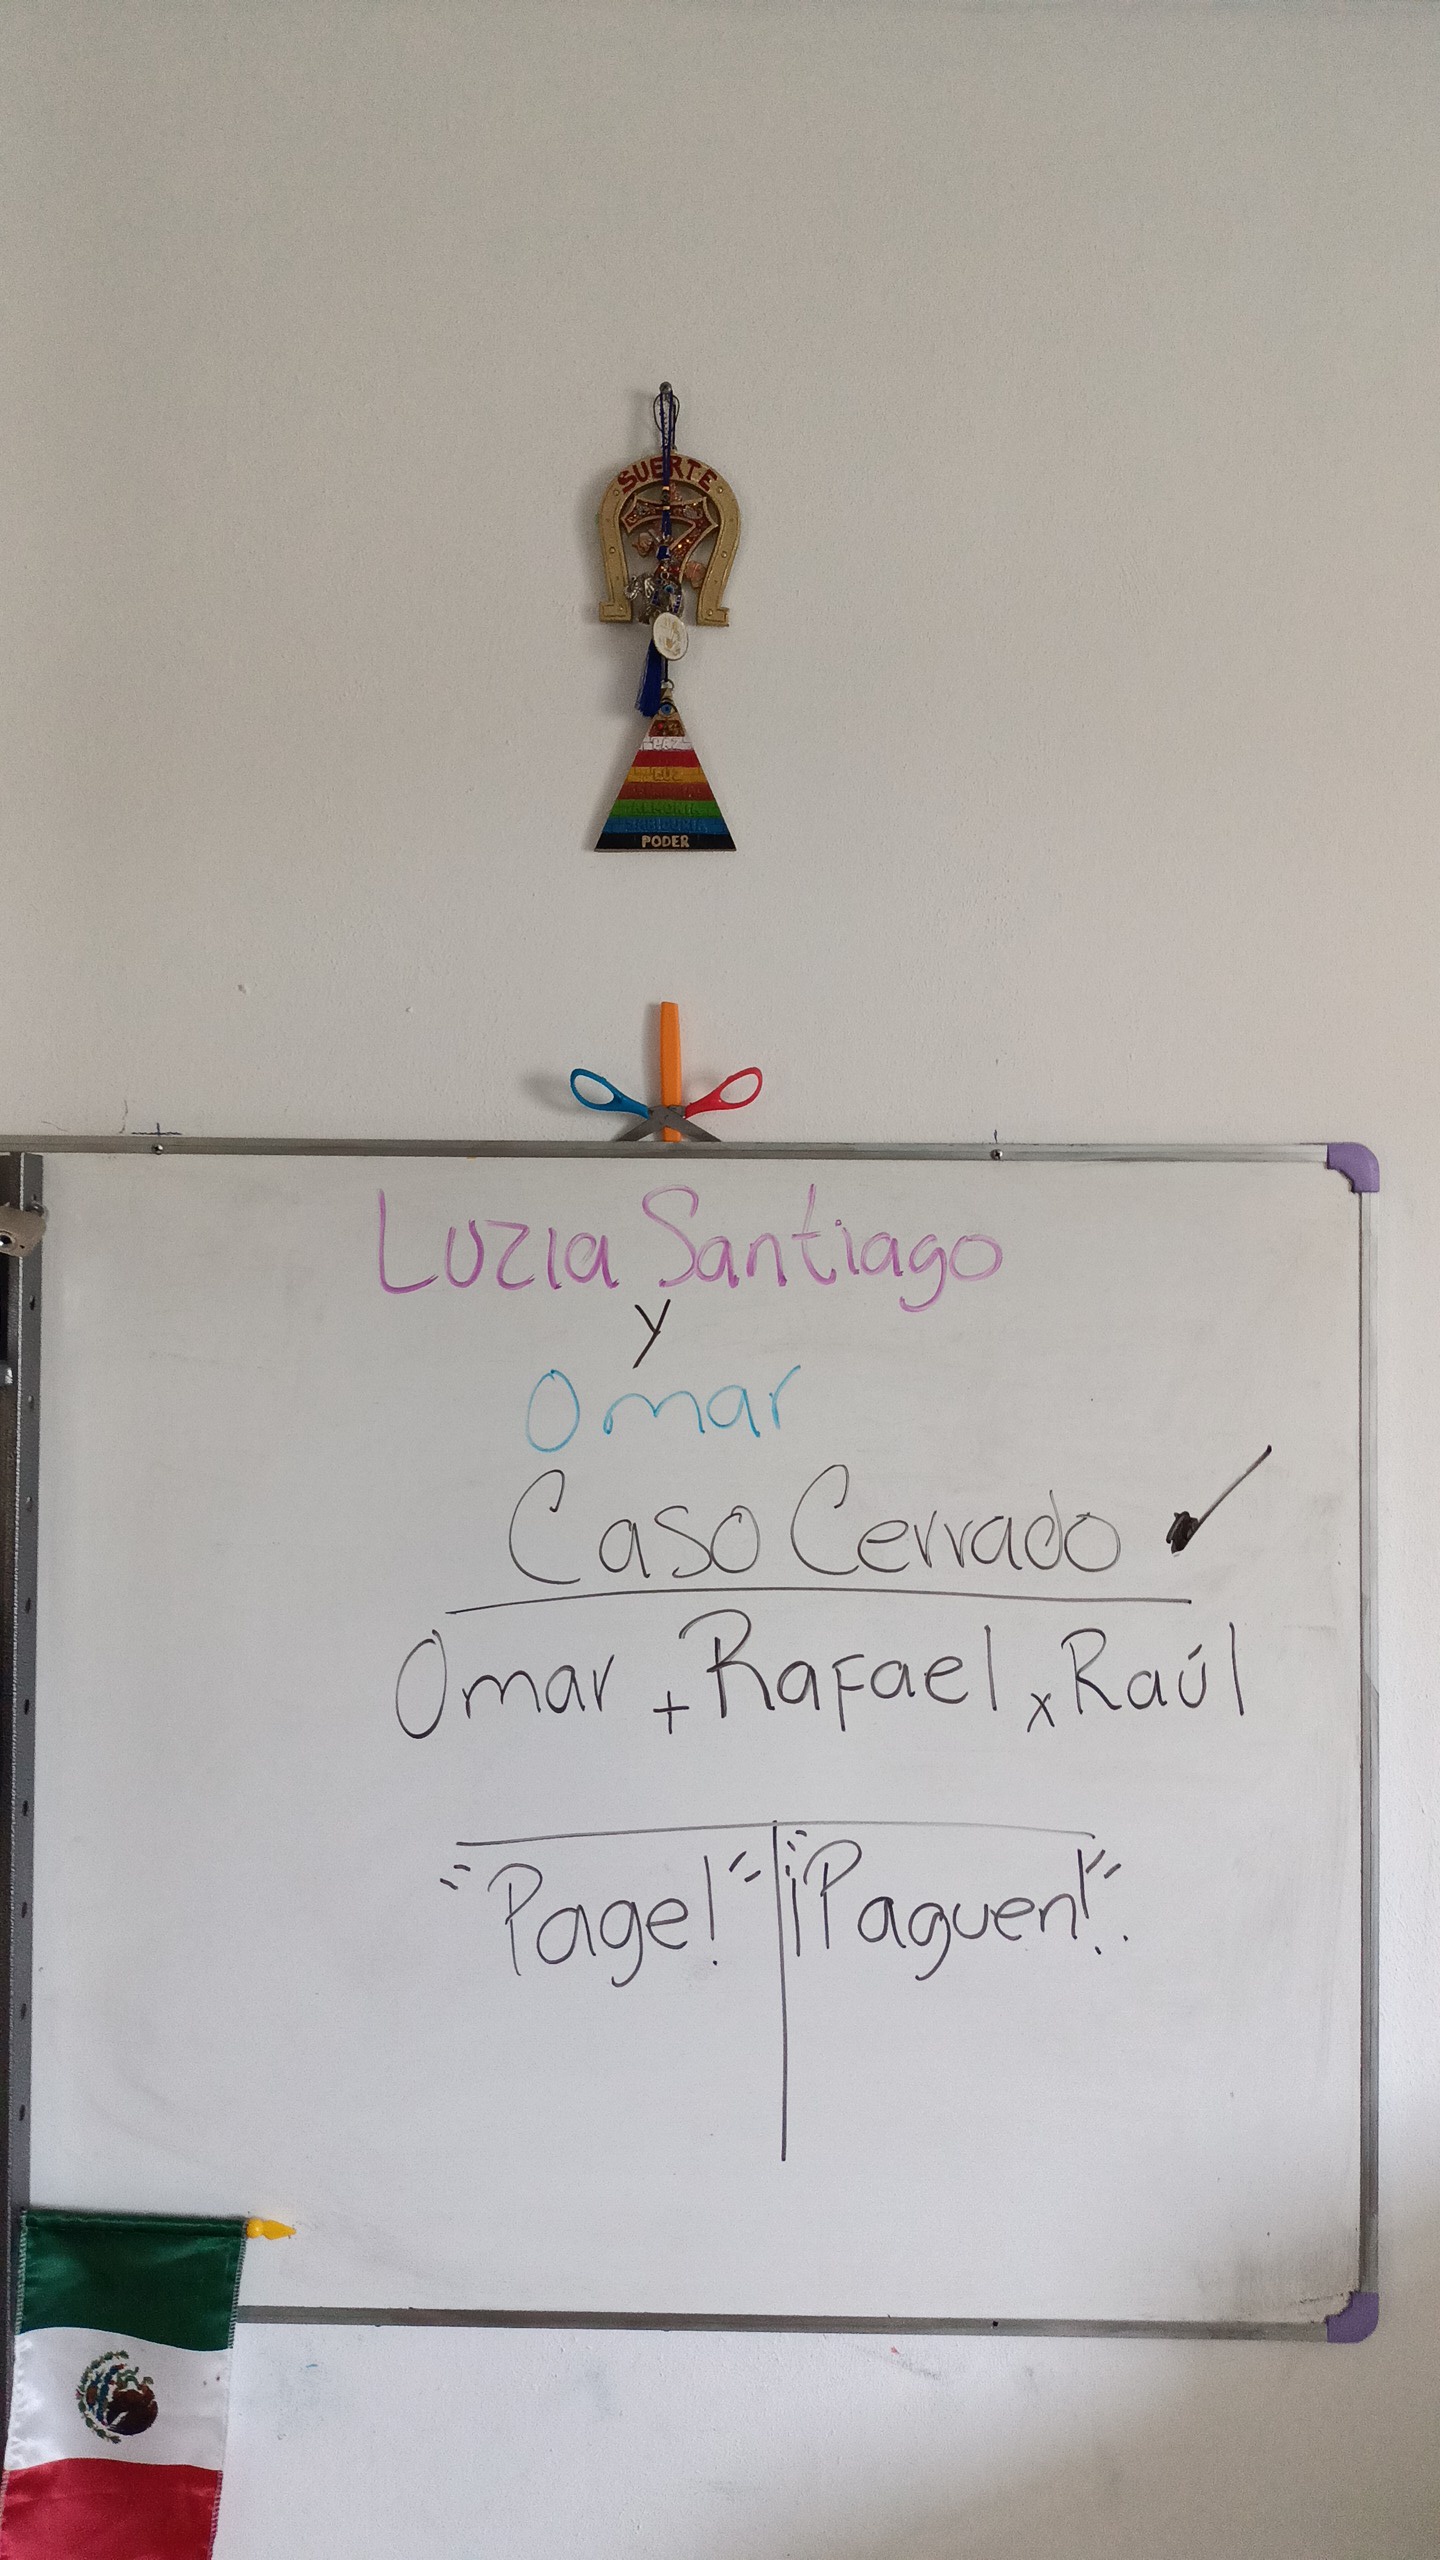 SUERTE
7
LUZ
PODER
Luzia Santiago
y
Omar
Caso Cerrado ✓
Omar + Rafael x Raúl
"Page!" "¡Paguen!".